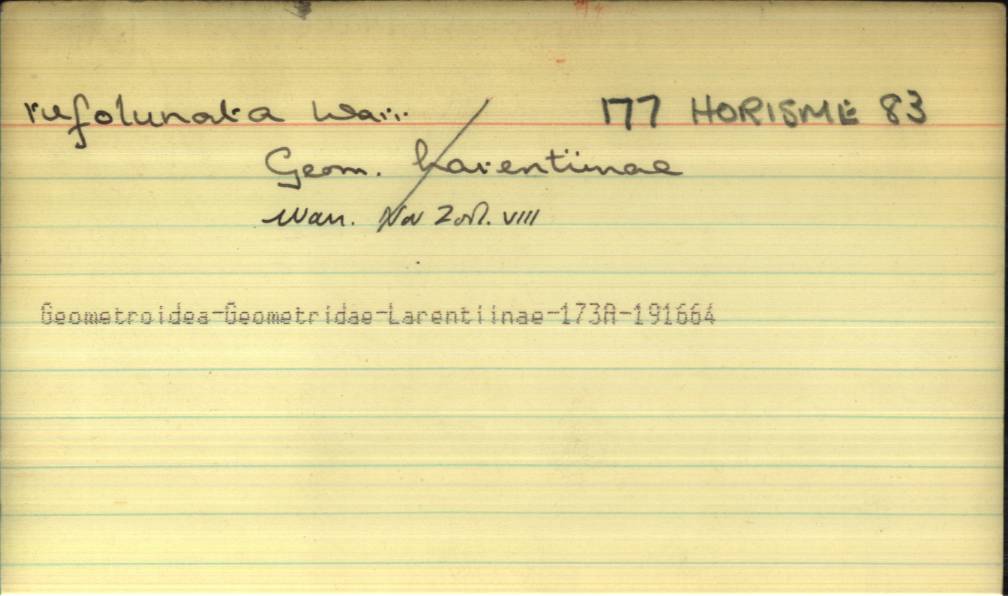 rufolunata Warr. 177 HORISME 83
Geom. Larentiinae
Warr. Nov Zool. VIII
Geometroidea-Geometridae-Larentiinae-173A-191664